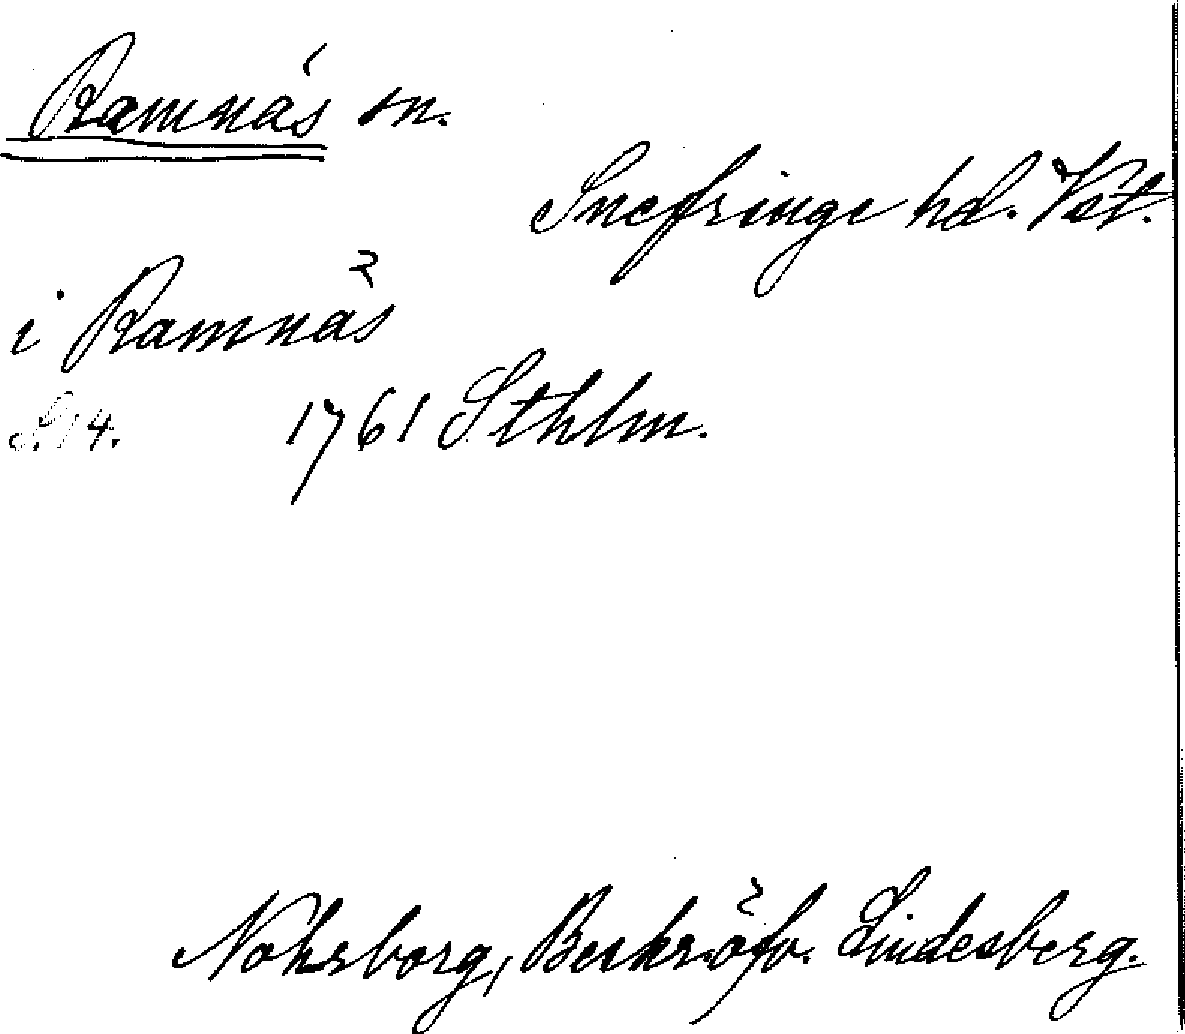 Ramnäs sn.
Snefringe hd. Vst.
i Ramnäs
S. 14. 1761 Sthlm.
Nohrborg, Beskr. öfv. Lindesberg.